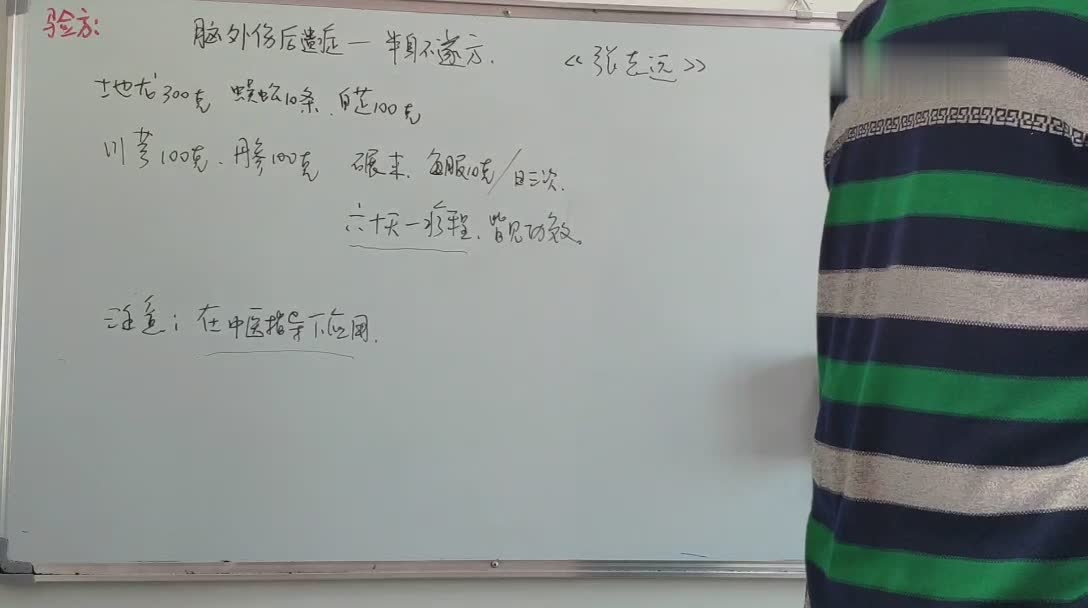 验方:
脑外伤后遗症—半身不遂方. 《张志远》
土地龙300克 蜈蚣10条、白芷100克
川芎100克、丹参100克 碾末.每服10克/日三次.
六十天一疗程.皆见功效。
注意:在中医指导下应用.